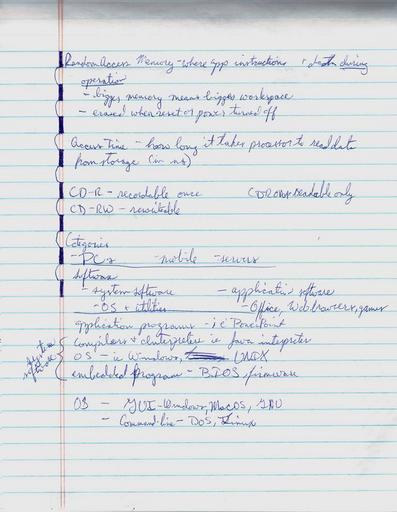 Random Access Memory - where app instructions + data during
operation
- bigger memory means bigger workspace
- erased when reset or power turned off
Access Time - how long it takes processor to read data
from storage (in ns)
CD-R - recordable once CDROM - Readable only
CD-RW - rewriteable
Categories
- PCs - mobile - servers
Software
- system software - application software
- OS + utilities - Office, Web browsers, games
application programs - ie PowerPoint
compilers + interpreters ie Java interpreter
OS - ie Windows, UNIX
embedded program - BIOS, firmware
system
software
OS - GUI - Windows, MacOS,
- Command-line - DOS, Linux